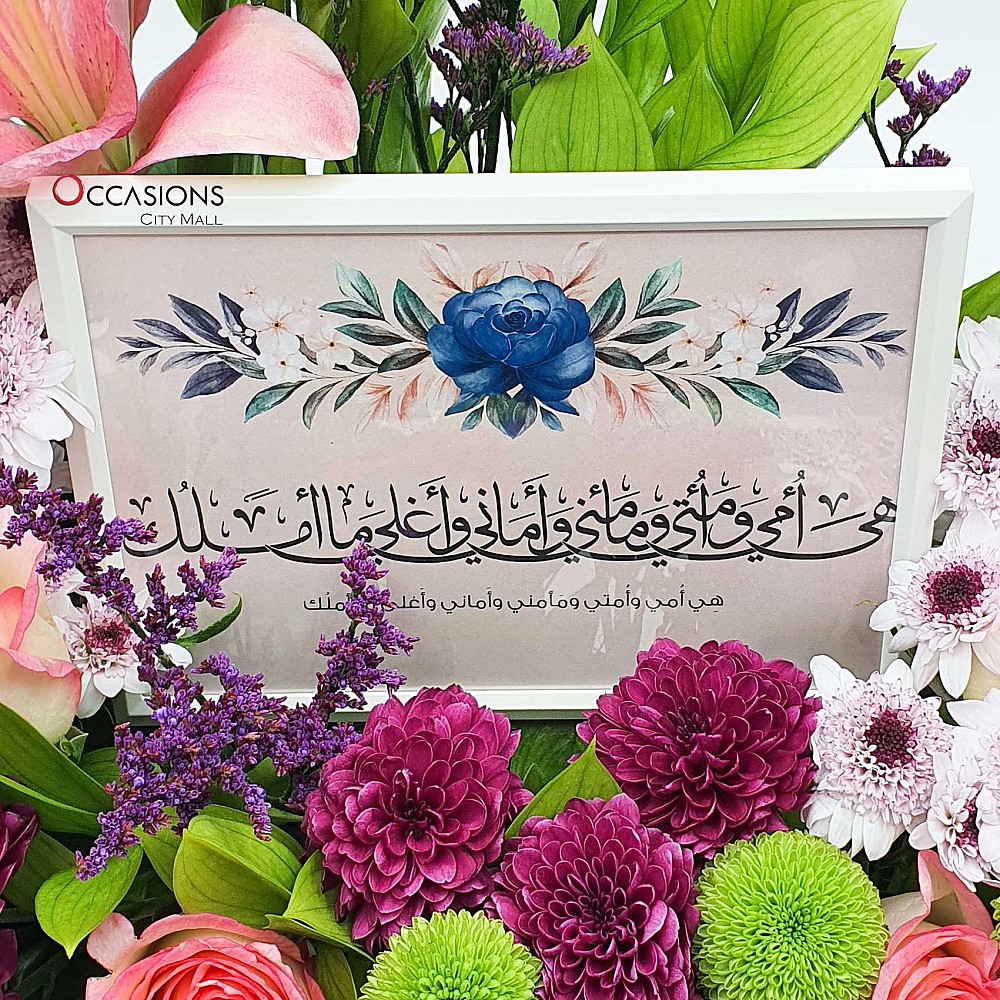 OCCASIONS
CITY MALL
هيَ أُمي وَأُمّتي وَمَأمَني وَأمَاني وَأَغلى مَا أَمـلُك
هِي أُمي وأُمتي ومَأمني وأماني وأغلى أملُك